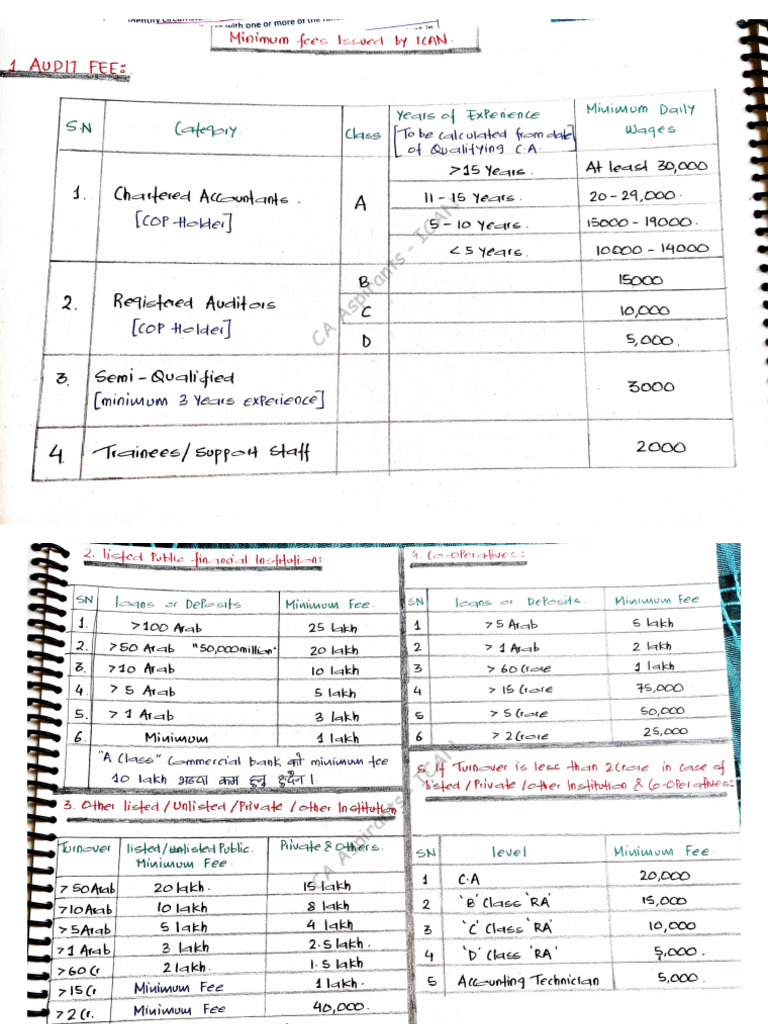 with one or more of the
Minimum fees Issued by ICAN.
1. AUDIT FEE:
SN Category Class Years of Experience [To be calculated from date of Qualifying C.A Minimum Daily Wages
1. Chartered Accountants. [COP Holder] A >15 Years. At least 30,000
11 - 15 Years. 20 - 29,000.
5 - 10 Years. 15000 - 19000.
< 5 Years. 10000 - 14000
2. Registered Auditors [COP Holder] B 15000
C 10,000
D 5,000.
3. Semi - Qualified [minimum 3 Years experience] 3000
4. Trainees / Support Staff 2000
CA Aspirants - ICAN
2. Listed Public financial Institution:
SN loans or Deposits Minimum Fee.
1. >100 Arab 25 lakh
2. >50 Arab "50,000million" 20 lakh
3. >10 Arab 10 lakh
4. > 5 Arab 5 lakh
5. > 1 Arab 3 lakh
6. Minimum 1 lakh
"A Class" Commercial bank को minimum fee
10 lakh भन्दा कम हुनु हुदैन।
3. Other listed / Unlisted / Private / other Institution
Turnover listed/unlisted Public. Minimum Fee. Private & Others.
>50 Arab 20 lakh. 15 lakh
>10 Arab 10 lakh 8 lakh
>5 Arab 5 lakh 4 lakh
>1 Arab 3 lakh 2.5 lakh.
>60 Cr 2 lakh. 1.5 lakh
>15 Cr Minimum Fee 1 lakh.
>2 Cr. Minimum Fee 40,000.
4. Co-operatives:
SN loans or Deposits. Minimum Fee
1 > 5 Arab 5 lakh
2 > 1 Arab 2 lakh
3 > 60 crore 1 lakh
4 > 15 Crore 75,000
5 > 5 Crore 50,000
6 > 2 Crore 25,000
5. If Turnover is less than 2 Crore in case of
listed / Private / other Institution & Co-operatives:
SN level Minimum Fee.
1 C.A 20,000
2 'B' Class 'RA' 15,000
3 'C' Class 'RA' 10,000
4 'D' Class 'RA' 5,000.
5 Accounting Technician 5,000.
CA Aspirants - ICAN